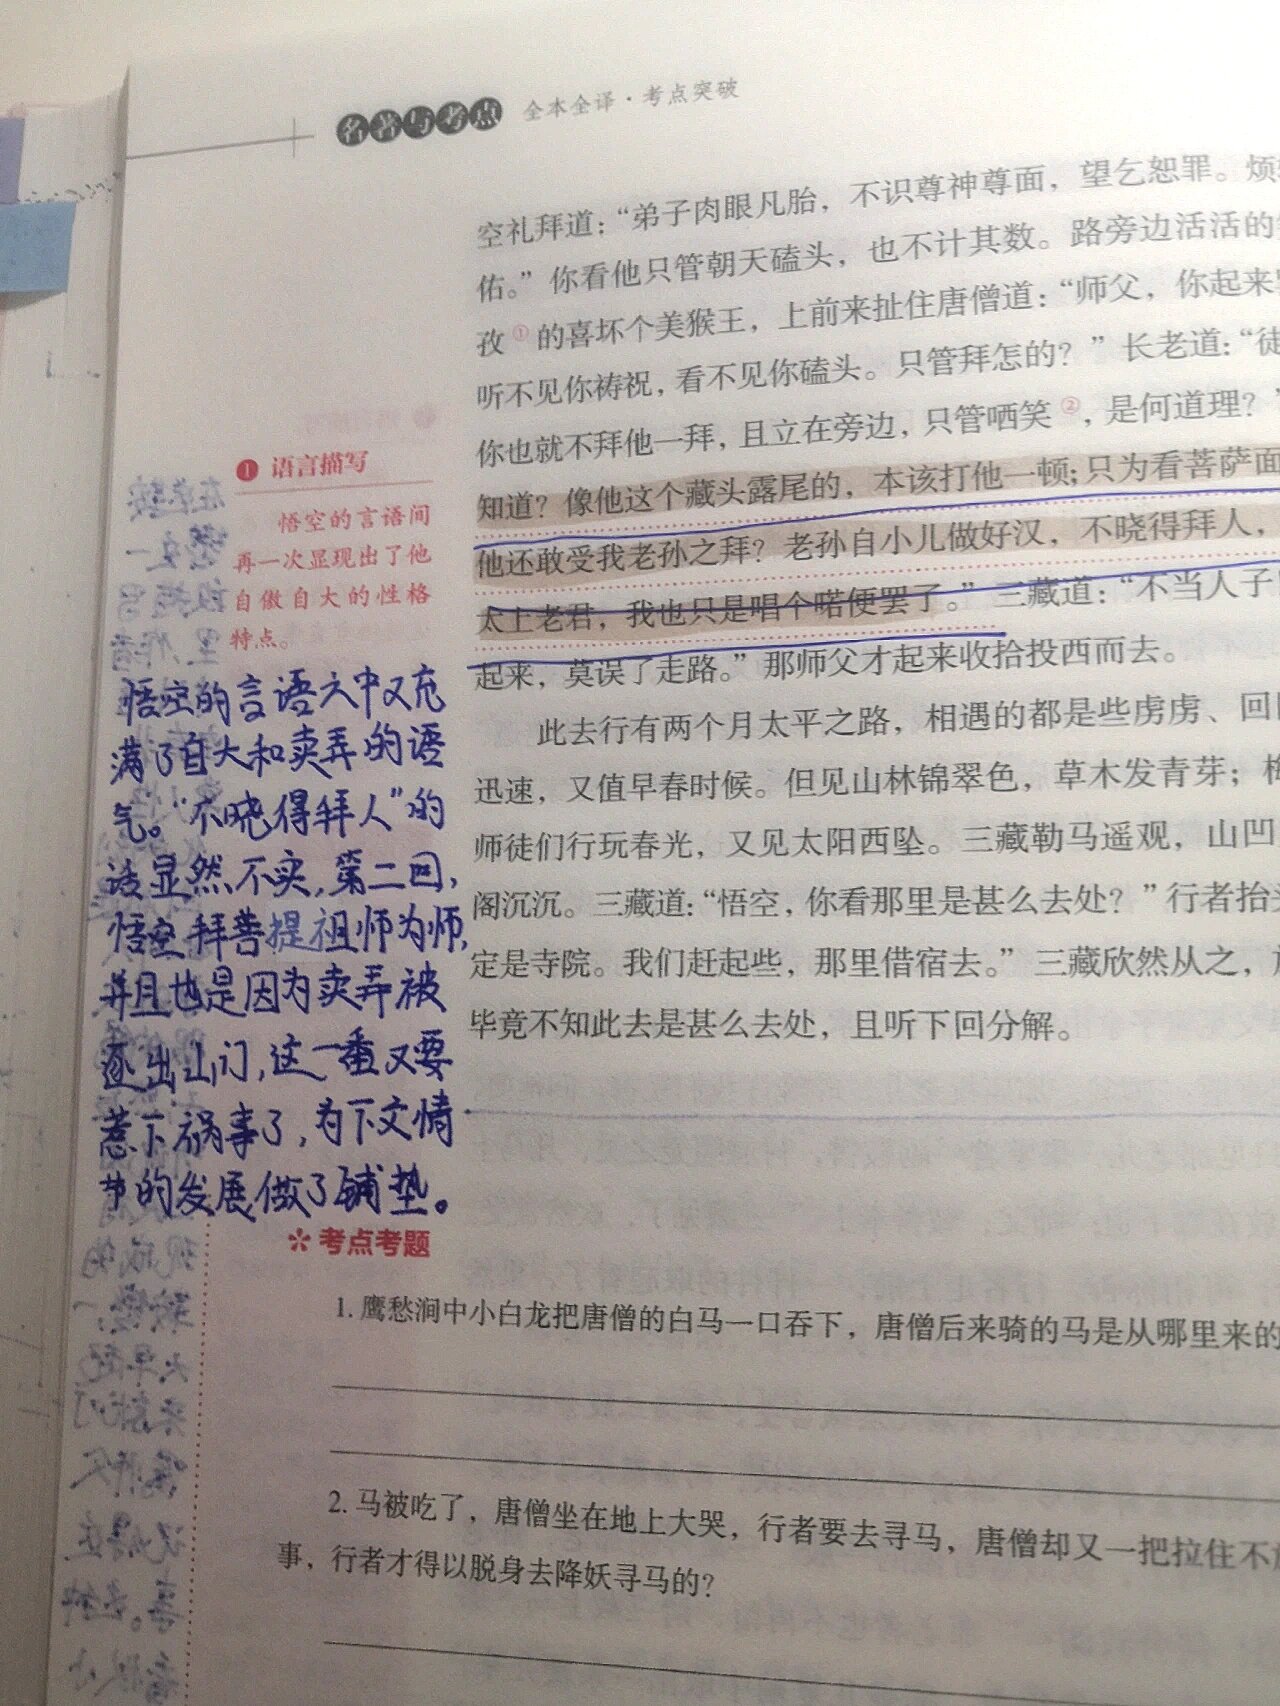 名著与考点 全本全译·考点突破
空礼拜道：“弟子肉眼凡胎，不识尊神尊面，望乞恕罪。烦
佑。”你看他只管朝天磕头，也不计其数。路旁边活活的
孜①的喜坏个美猴王，上前来扯住唐僧道：“师父，你起来
听不见你祷祝，看不见你磕头。只管拜怎的？”长老道：“徒
你也就不拜他一拜，且立在旁边，只管哂笑②，是何道理？”
知道？像他这个藏头露尾的，本该打他一顿；只为看菩萨面
他还敢受我老孙之拜？老孙自小儿做好汉，不晓得拜人，
太上老君，我也只是唱个喏便罢了。”三藏道：“不当人子
起来，莫误了走路。”那师父才起来收拾投西而去。
此去行有两个月太平之路，相遇的都是些虏虏、回
迅速，又值早春时候。但见山林锦翠色，草木发青芽；梅
师徒们行玩春光，又见太阳西坠。三藏勒马遥观，山凹
阁沉沉。三藏道：“悟空，你看那里是甚么去处？”行者抬
定是寺院。我们赶起些，那里借宿去。”三藏欣然从之，
毕竟不知此去是甚么去处，且听下回分解。
❶ 语言描写
悟空的言语间
再一次显现出了他
自傲自大的性格
特点。
悟空的言语之中又充
满了自大和卖弄的语
气。“不晓得拜人”的
话显然不实，第二回，
悟空拜菩提祖师为师，
并且也是因为卖弄被
逐出山门，这一番又要
惹下祸事了，为下文情
节的发展做了铺垫。
✻ 考点考题
1. 鹰愁涧中小白龙把唐僧的白马一口吞下，唐僧后来骑的马是从哪里来的
2. 马被吃了，唐僧坐在地上大哭，行者要去寻马，唐僧却又一把拉住不
事，行者才得以脱身去降妖寻马的？